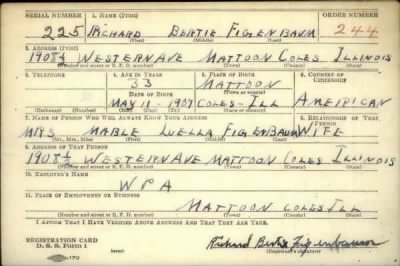 SERIAL NUMBER 1. NAME (Print) ORDER NUMBER
225 RICHARD BERTIE FIGENBAUM 244
(First) (Middle) (Last)
2. ADDRESS (Print)
1908½ WESTERN AVE MATTOON COLES ILLINOIS
(Number and street or R. F. D. number) (Town) (County) (State)
3. TELEPHONE 4. AGE IN YEARS 5. PLACE OF BIRTH 6. COUNTRY OF CITIZENSHIP
33 MATTOON
DATE OF BIRTH (Town or county)
MAY 11-1907 COLES-ILL AMERICAN
(Exchange) (Number) (Mo.) (Day) (Yr.) (State or country)
7. NAME OF PERSON WHO WILL ALWAYS KNOW YOUR ADDRESS 8. RELATIONSHIP OF THAT PERSON
MRS MABLE LUELLA FIGENBAUM WIFE
(Mr., Mrs., Miss) (First) (Middle) (Last)
9. ADDRESS OF THAT PERSON
1908½ WESTERN AVE MATTOON COLES ILLINOIS
(Number and street or R. F. D. number) (Town) (County) (State)
10. EMPLOYER'S NAME
WPA
11. PLACE OF EMPLOYMENT OR BUSINESS
MATTOON COLES ILL
(Number and street or R. F. D. number) (Town) (County) (State)
I AFFIRM THAT I HAVE VERIFIED ABOVE ANSWERS AND THAT THEY ARE TRUE.
REGISTRATION CARD
D. S. S. Form 1
Richard Bertie Figenbaum
(Registrant's signature)